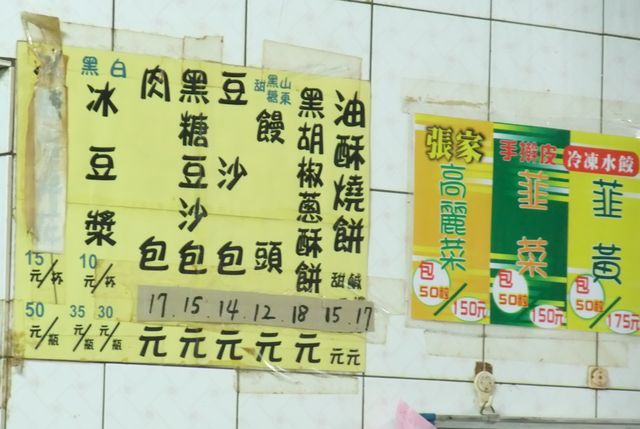 油酥燒餅 甜 鹹 15.17 元 元
黑胡椒蔥酥餅 18 元
山東 黑糖 甜 饅頭 12 元
豆沙包 14 元
黑糖豆沙包 15 元
肉包 17 元
黑 白 冰豆漿
15元/杯 10元/杯
50元/瓶 35元/瓶 30元/瓶
張家 手擀皮 冷凍水餃
高麗菜 包50粒/150元
韮菜 包50粒/150元
韮黃 包50粒/175元